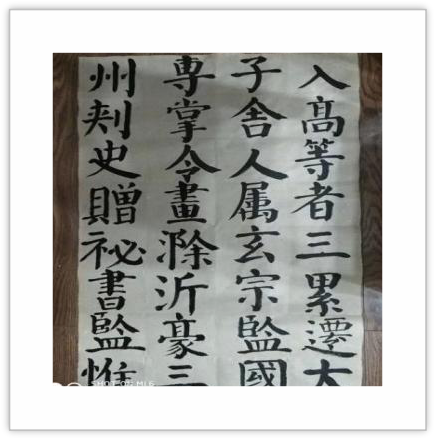 入髙等者三累遷
子舎人属玄宗監國
専掌令畫滁沂豪三
州刾史贈祕書監惟
SHOT ON MI 6